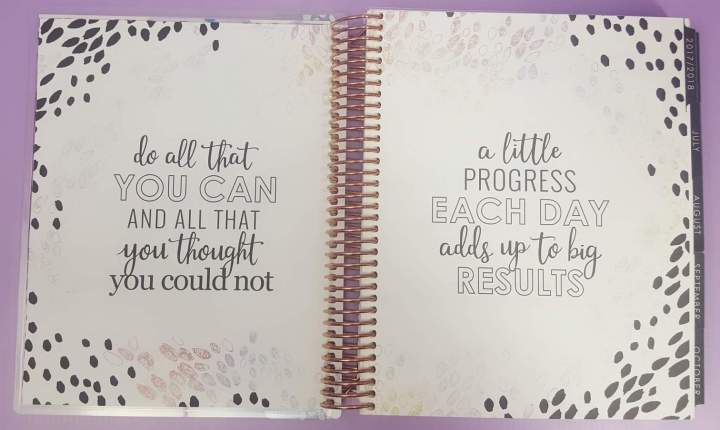 do all that
YOU CAN
AND ALL THAT
you thought
you could not
a little
PROGRESS
EACH DAY
adds up to big
RESULTS
2017/2018
JULY
AUGUST
SEPTEMBER
OCTOBER